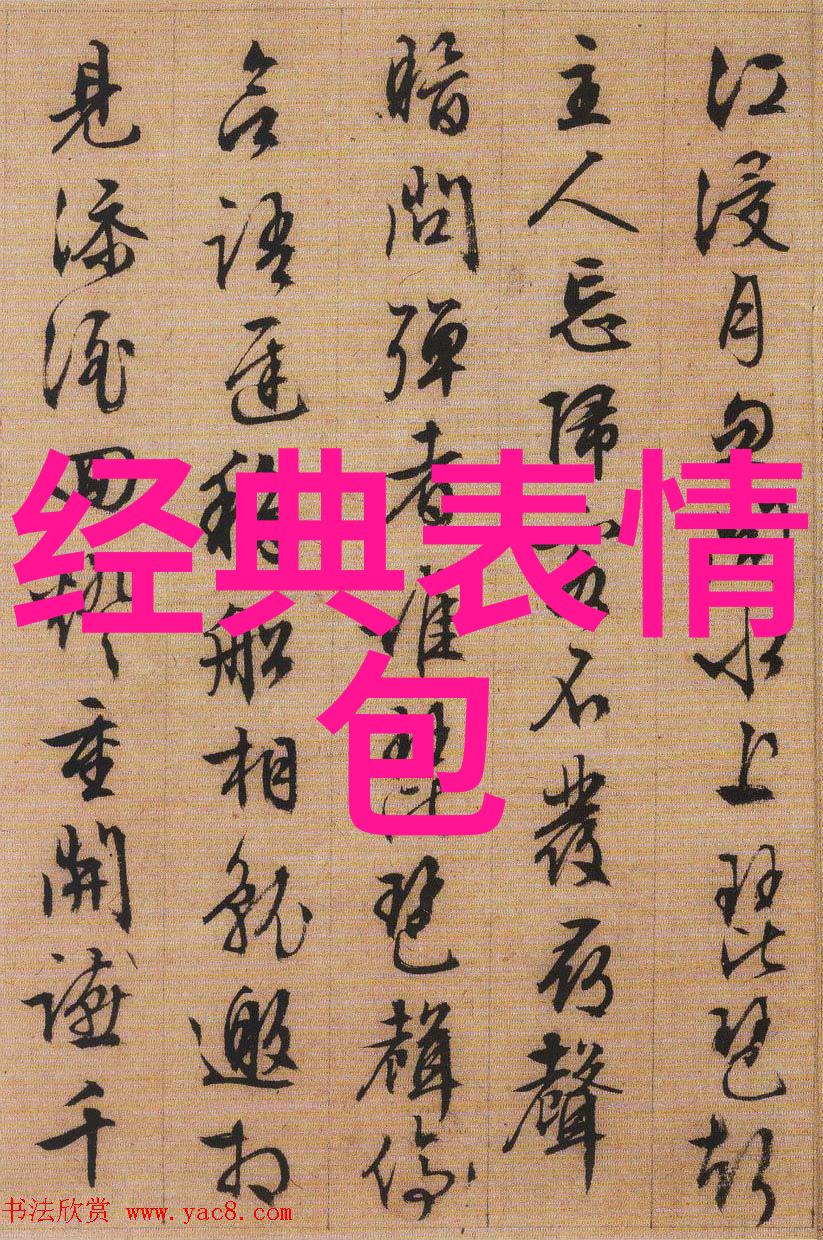 江浸月忽水上琵琶
主人忘歸客不發尋聲
暗問彈者誰琵琶聲停
語遲移船相就邀相
見添酒回燈重開讌千
经典表情
包
书法欣赏 www.yac8.com